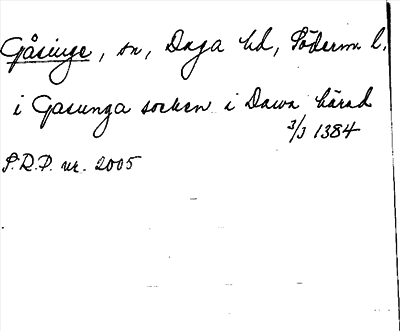 Gåsinge, sn, Daga hd, Söderm. l.
i Gasunga socken i Dawa härad
3/3 1384
S.R.P. nr. 2005